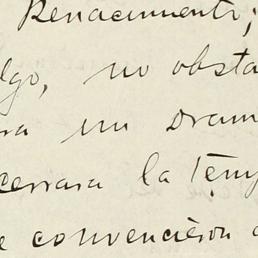 Renacimiento;
lgo, no obsta
ra un dram
cerrara la Temp
e convención